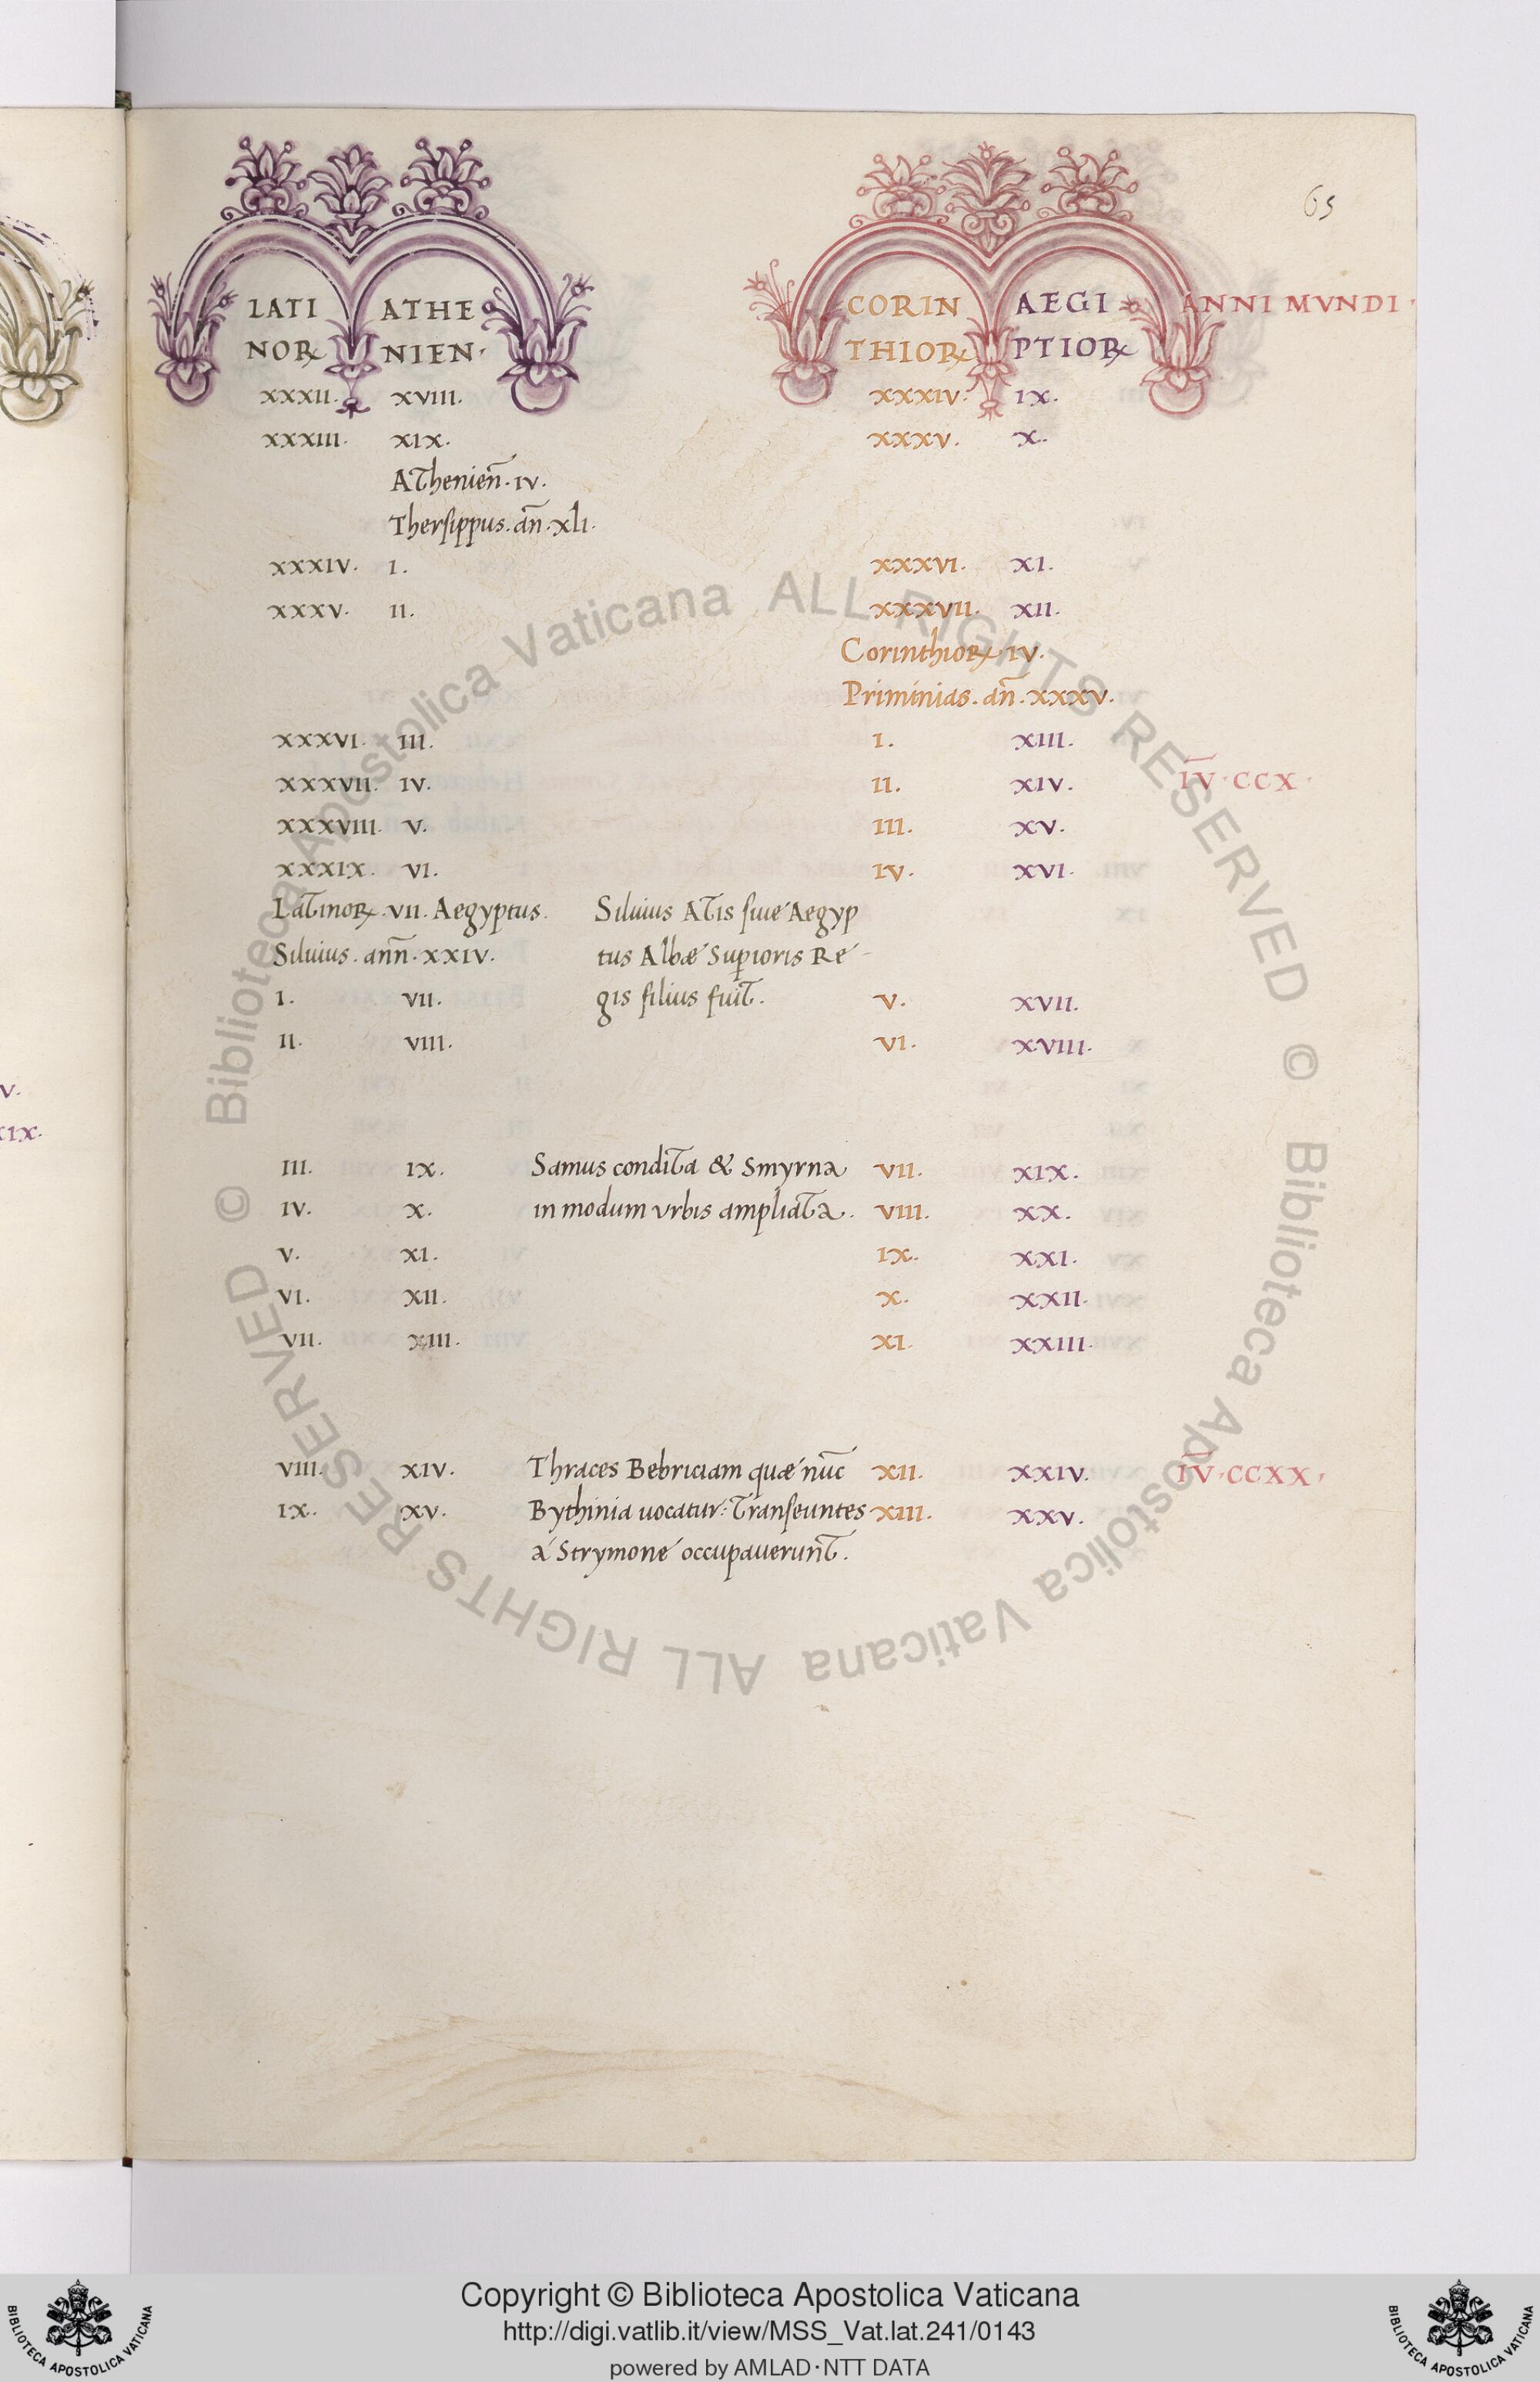 65
LATI ATHE CORIN AEGI ANNI MVNDI ·
NOꝜ NIEN· THIOꝜ PTIOꝜ
XXXII. XVIII. XXXIV. IX.
XXXIII. XIX. XXXV. X.
Athenien̄. IV.
Thersippus. an̄. xli.
XXXIV. I. XXXVI. XI.
XXXV. II. XXXVII. XII.
CorinthioꝜ IV.
Priminias. an̄. XXXV.
XXXVI. III. I. XIII.
XXXVII. IV. II. XIV. I̅V̅·CCX·
XXXVIII. V. III. XV.
XXXIX. VI. IV. XVI.
LatinoꝜ. VII. Aegyptus. Siluius Atis siue Aegyp
Siluius. ann̄. XXIV. tus Albæ Supioris Re-
I. VII. gis filius fuit. V. XVII.
II. VIII. VI. XVIII.
III. IX. Samus condita & Smyrna VII. XIX.
IV. X. in modum vrbis ampliata. VIII. XX.
V. XI. IX. XXI.
VI. XII. X. XXII.
VII. XIII. XI. XXIII.
VIII. XIV. Thraces Bebriciam quæ nūc XII. XXIV. I̅V̅·CCXX·
IX. XV. Bythinia uocatur: Transeuntes XIII. XXV.
a Strymone occupauerunt.
V.
XIX.
© Biblioteca Apostolica Vaticana ALL RIGHTS RESERVED
© Biblioteca Apostolica Vaticana ALL RIGHTS RESERVED
Copyright © Biblioteca Apostolica Vaticana
http://digi.vatlib.it/view/MSS_Vat.lat.241/0143
powered by AMLAD·NTT DATA
BIBLIOTECA APOSTOLICA VATICANA
BIBLIOTECA APOSTOLICA VATICANA